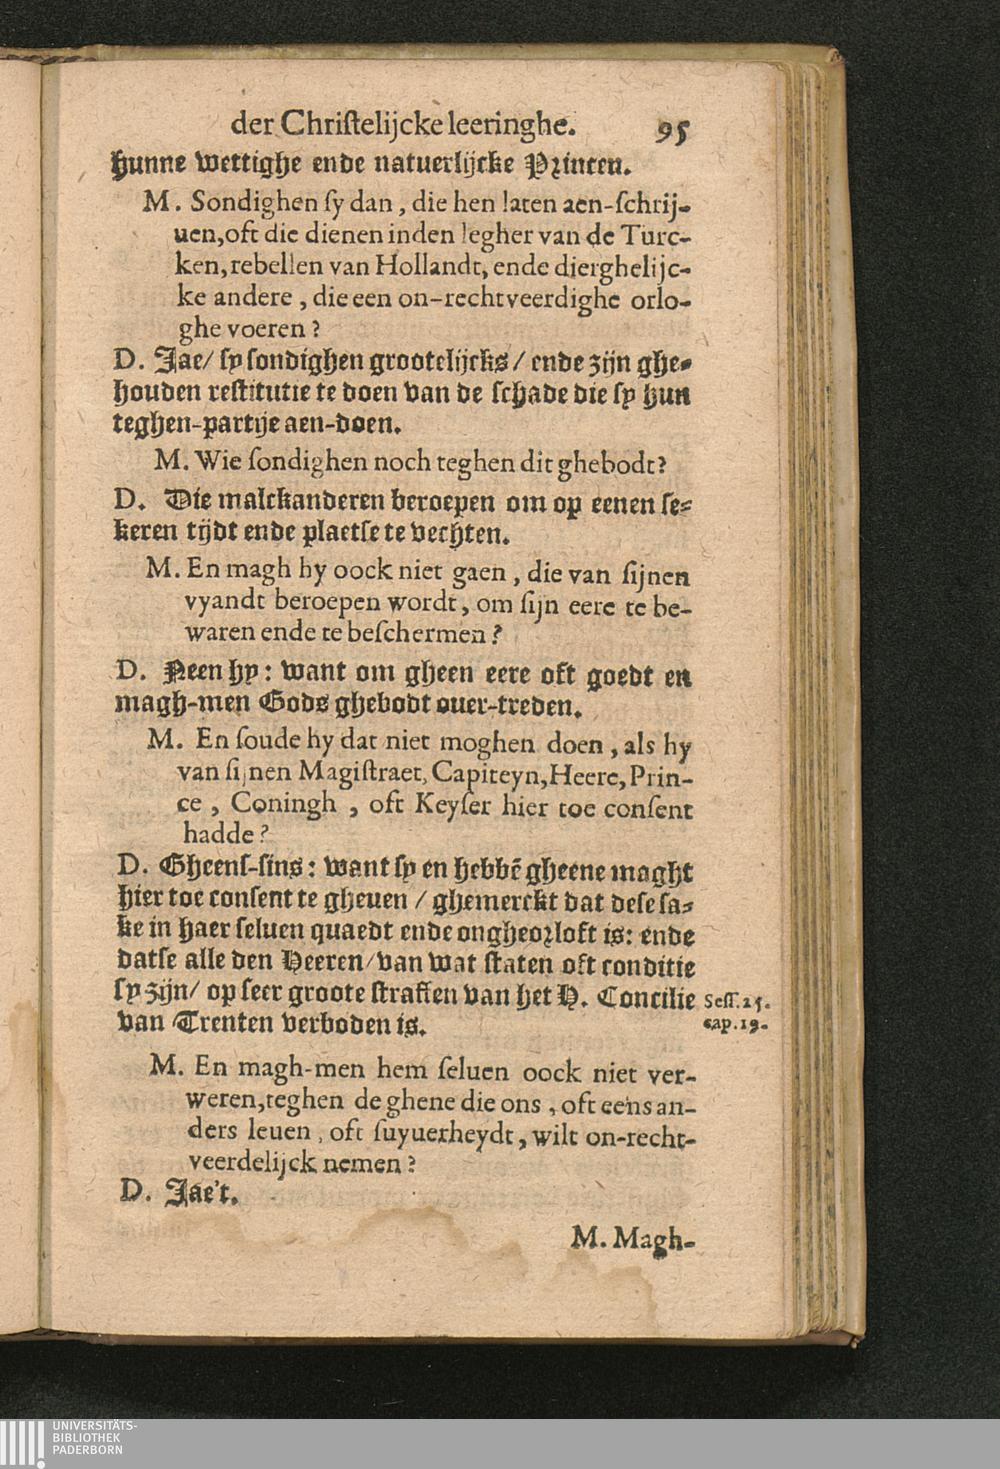 der Chriſtelijcke leeringhe. 95
hunne wettighe ende natuerlijcke Pꝛincen.
M. Sondighen ſy dan, die hen laten aen-ſchrij-
uen, oft die dienen inden legher van de Turc-
ken, rebellen van Hollandt, ende dierghelijc-
ke andere, die een on-rechtveerdighe orlo-
ghe voeren?
D. Jae/ ſy ſondighen grootelijcks/ ende zijn ghe-
houden reſtitutie te doen van de ſchade die ſy hun
teghen-partije aen-doen.
M. Wie ſondighen noch teghen dit ghebodt?
D. Die malckanderen beroepen om op eenen ſe-
keren tijdt ende plaetſe te vechten.
M. En magh hy oock niet gaen, die van ſijnen
vyandt beroepen wordt, om ſijn eere te be-
waren ende te beſchermen?
D. Neen hy: want om gheen eere oft goedt en
magh-men Gods ghebodt ouer-treden.
M. En ſoude hy dat niet moghen doen, als hy
van ſijnen Magiſtraet, Capiteyn, Heere, Prin-
ce, Coningh, oft Keyſer hier toe conſent
hadde?
D. Gheenſ-ſins: want ſy en hebbē gheene maght
hier toe conſent te gheuen/ ghemerckt dat deſe ſa-
ke in haer ſeluen quaedt ende ongheoꝛloft is: ende
datſe alle den Heeren/ van wat ſtaten oft conditie
ſy zijn/ op ſeer groote ſtraffen van het H. Concilie Seſſ. 25.
van Trenten verboden is. cap. 19.
M. En magh-men hem ſeluen oock niet ver-
weren, teghen de ghene die ons, oft eens an-
ders leuen, oft ſuyuerheydt, wilt on-recht-
veerdelijck nemen?
D. Jae't.
M. Magh-
UNIVERSITÄTS-
BIBLIOTHEK
PADERBORN